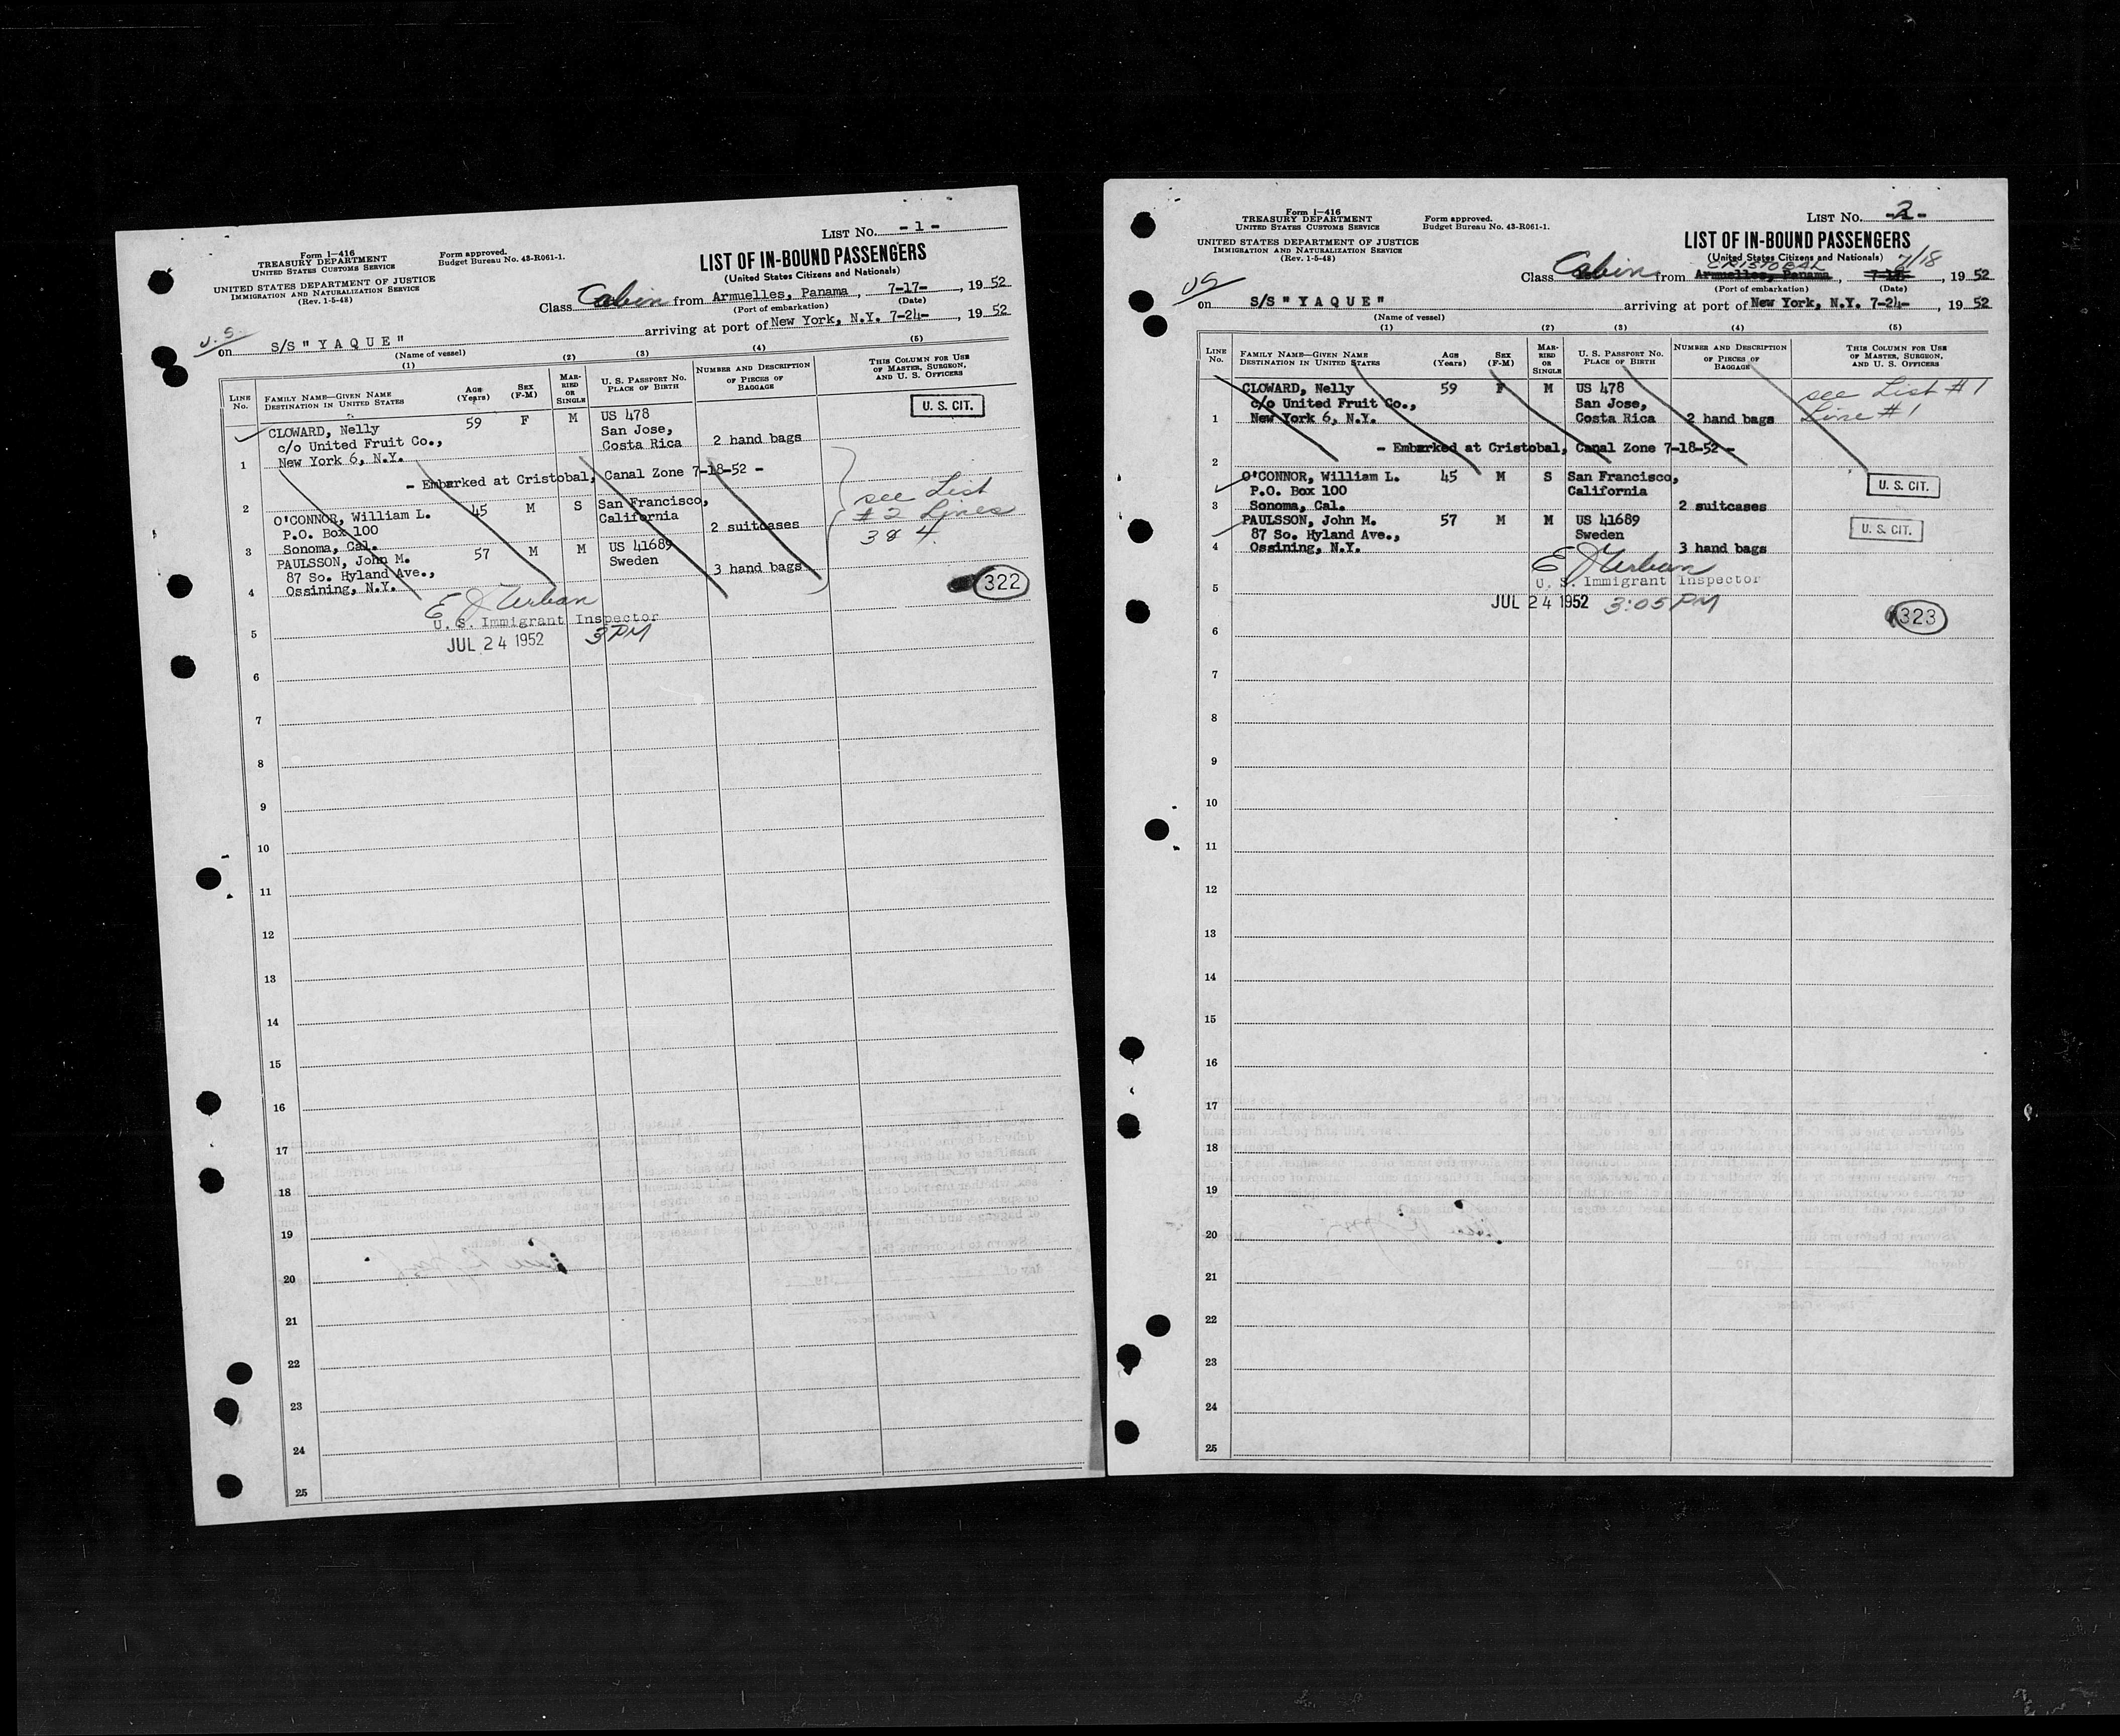 LIST No. - 1 -
Form I-416
TREASURY DEPARTMENT
UNITED STATES CUSTOMS SERVICE
Form approved.
Budget Bureau No. 43-R061-1.
UNITED STATES DEPARTMENT OF JUSTICE
IMMIGRATION AND NATURALIZATION SERVICE
(Rev. 1-5-48)
LIST OF IN-BOUND PASSENGERS
(United States Citizens and Nationals)
Class Cabin from Armuelles, Panama, 7-17-, 1952
(Port of embarkation) (Date)
U.S.
on S/S " Y A Q U E " arriving at port of New York, N.Y. 7-24-, 1952
(Name of vessel)
(1) (2) (3) (4) (5)
LINE No. FAMILY NAME—GIVEN NAME DESTINATION IN UNITED STATES AGE (Years) SEX (F-M) MARRIED OR SINGLE U. S. PASSPORT NO. PLACE OF BIRTH NUMBER AND DESCRIPTION OF PIECES OF BAGGAGE THIS COLUMN FOR USE OF MASTER, SURGEON, AND U. S. OFFICERS
CLOWARD, Nelly 59 F M US 478 U. S. CIT.
c/o United Fruit Co., San Jose,
1 New York 6, N.Y. Costa Rica 2 hand bags
2 - Embarked at Cristobal, Canal Zone 7-18-52 -
O'CONNOR, William L. 45 M S San Francisco, see List
P.O. Box 100 California # 2 Lines
3 Sonoma, Cal. 2 suitcases 3 & 4.
PAULSSON, John M. 57 M M US 41689
87 So. Hyland Ave., Sweden
4 Ossining, N.Y. 3 hand bags
322
E J Urban
5 U. S. Immigrant Inspector
JUL 24 1952 3 PM
6
7
8
9
10
11
12
13
14
15
16
17
18
19
20
21
22
23
24
25
LIST No. - 2 -
Form I-416
TREASURY DEPARTMENT
UNITED STATES CUSTOMS SERVICE
Form approved.
Budget Bureau No. 43-R061-1.
UNITED STATES DEPARTMENT OF JUSTICE
IMMIGRATION AND NATURALIZATION SERVICE
(Rev. 1-5-48)
LIST OF IN-BOUND PASSENGERS
(United States Citizens and Nationals)
CRISTOBAL 7/18
Class Cabin from Armuelles, Panama, 1952
(Port of embarkation) (Date)
US
on S/S " Y A Q U E " arriving at port of New York, N.Y. 7-24-, 1952
(Name of vessel)
(1) (2) (3) (4) (5)
LINE No. FAMILY NAME—GIVEN NAME DESTINATION IN UNITED STATES AGE (Years) SEX (F-M) MARRIED OR SINGLE U. S. PASSPORT NO. PLACE OF BIRTH NUMBER AND DESCRIPTION OF PIECES OF BAGGAGE THIS COLUMN FOR USE OF MASTER, SURGEON, AND U. S. OFFICERS
CLOWARD, Nelly 59 F M US 478 see List # 1
c/o United Fruit Co., San Jose, Line # 1
1 New York 6, N.Y. Costa Rica 2 hand bags
2 - Embarked at Cristobal, Canal Zone 7-18-52 -
O'CONNOR, William L. 45 M S San Francisco, U. S. CIT.
P.O. Box 100 California
3 Sonoma, Cal. 2 suitcases
PAULSSON, John M. 57 M M US 41689 U. S. CIT.
87 So. Hyland Ave., Sweden
4 Ossining, N.Y. 3 hand bags
E J Urban
5 U. S. Immigrant Inspector
JUL 24 1952 3:05 PM
323
6
7
8
9
10
11
12
13
14
15
16
17
18
19
20
21
22
23
24
25